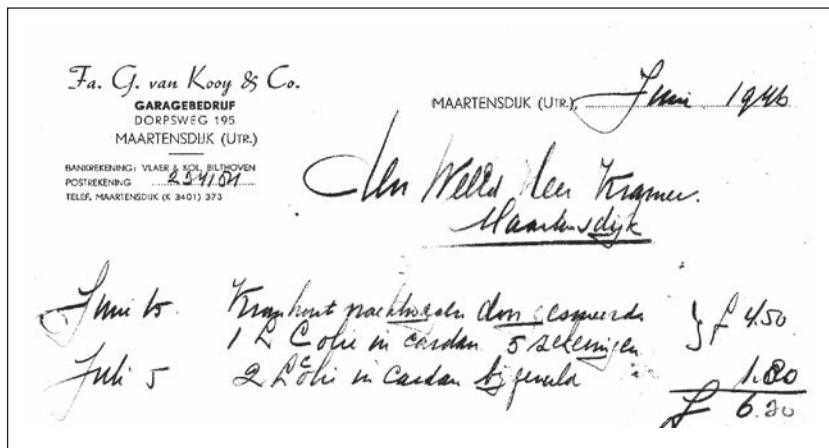 Fa. G. van Kooy & Co.
GARAGEBEDRIJF
DORPSWEG 195
MAARTENSDIJK (UTR.)
BANKREKENING: VLAER & KOL, BILTHOVEN
POSTREKENING 234104
TELEF. MAARTENSDIJK (K 3401) 373
MAARTENSDIJK (UTR.), Juni 1946
Den WelEd Heer Kramer.
Maartensdijk
Juni 15 doorgesmeerd } f 4.50
1 L C olie in cardan 5
Juli 5 2 L C olie in cardan bijgevuld 1.80
f 6.30